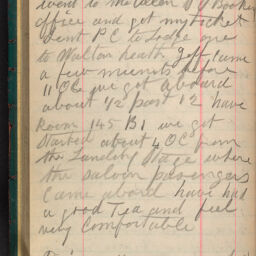 went to the Allen S Y Booking
office and got my ticket
sent P C to Lodge one
to Walton Heath Jeff came
a few mienits before
11 OC we got aboard
about 1/2 past 12 have
Room 145 B1 we got
started about 4 OC from
the Landing Stage where
the saloon passengers
came abord have had
a good Tea and feel
very comfortable